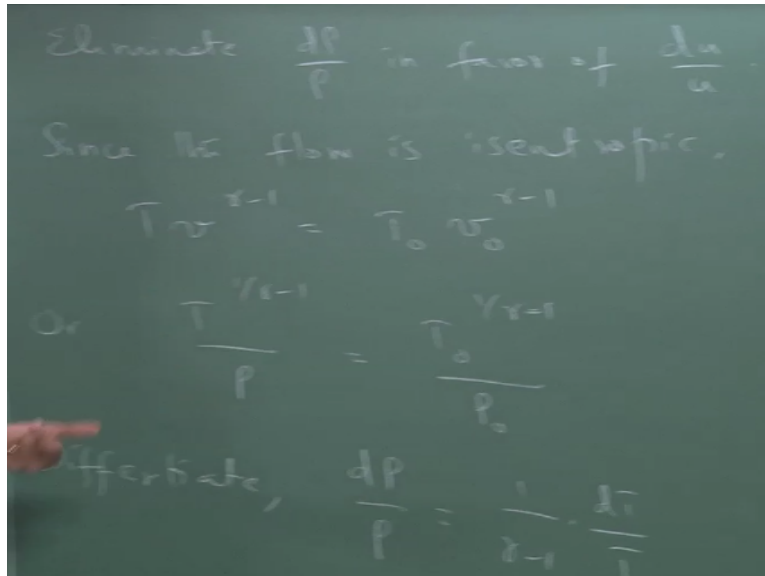 Eliminate dρ/ρ in favor of du/u.
Since the flow is isentropic,
T v^γ-1 = T₀ v₀^γ-1
Or T^1/γ-1 / ρ = T₀^1/γ-1 / ρ₀
Differtiate, dρ/ρ = 1/γ-1 · dT/T